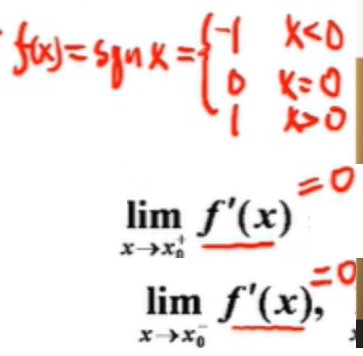 f(x) = sgn x = { -1 x<0
0 x=0
1 x>0
lim x→x₀⁺ f′(x) = 0
lim x→x₀⁻ f′(x), = 0